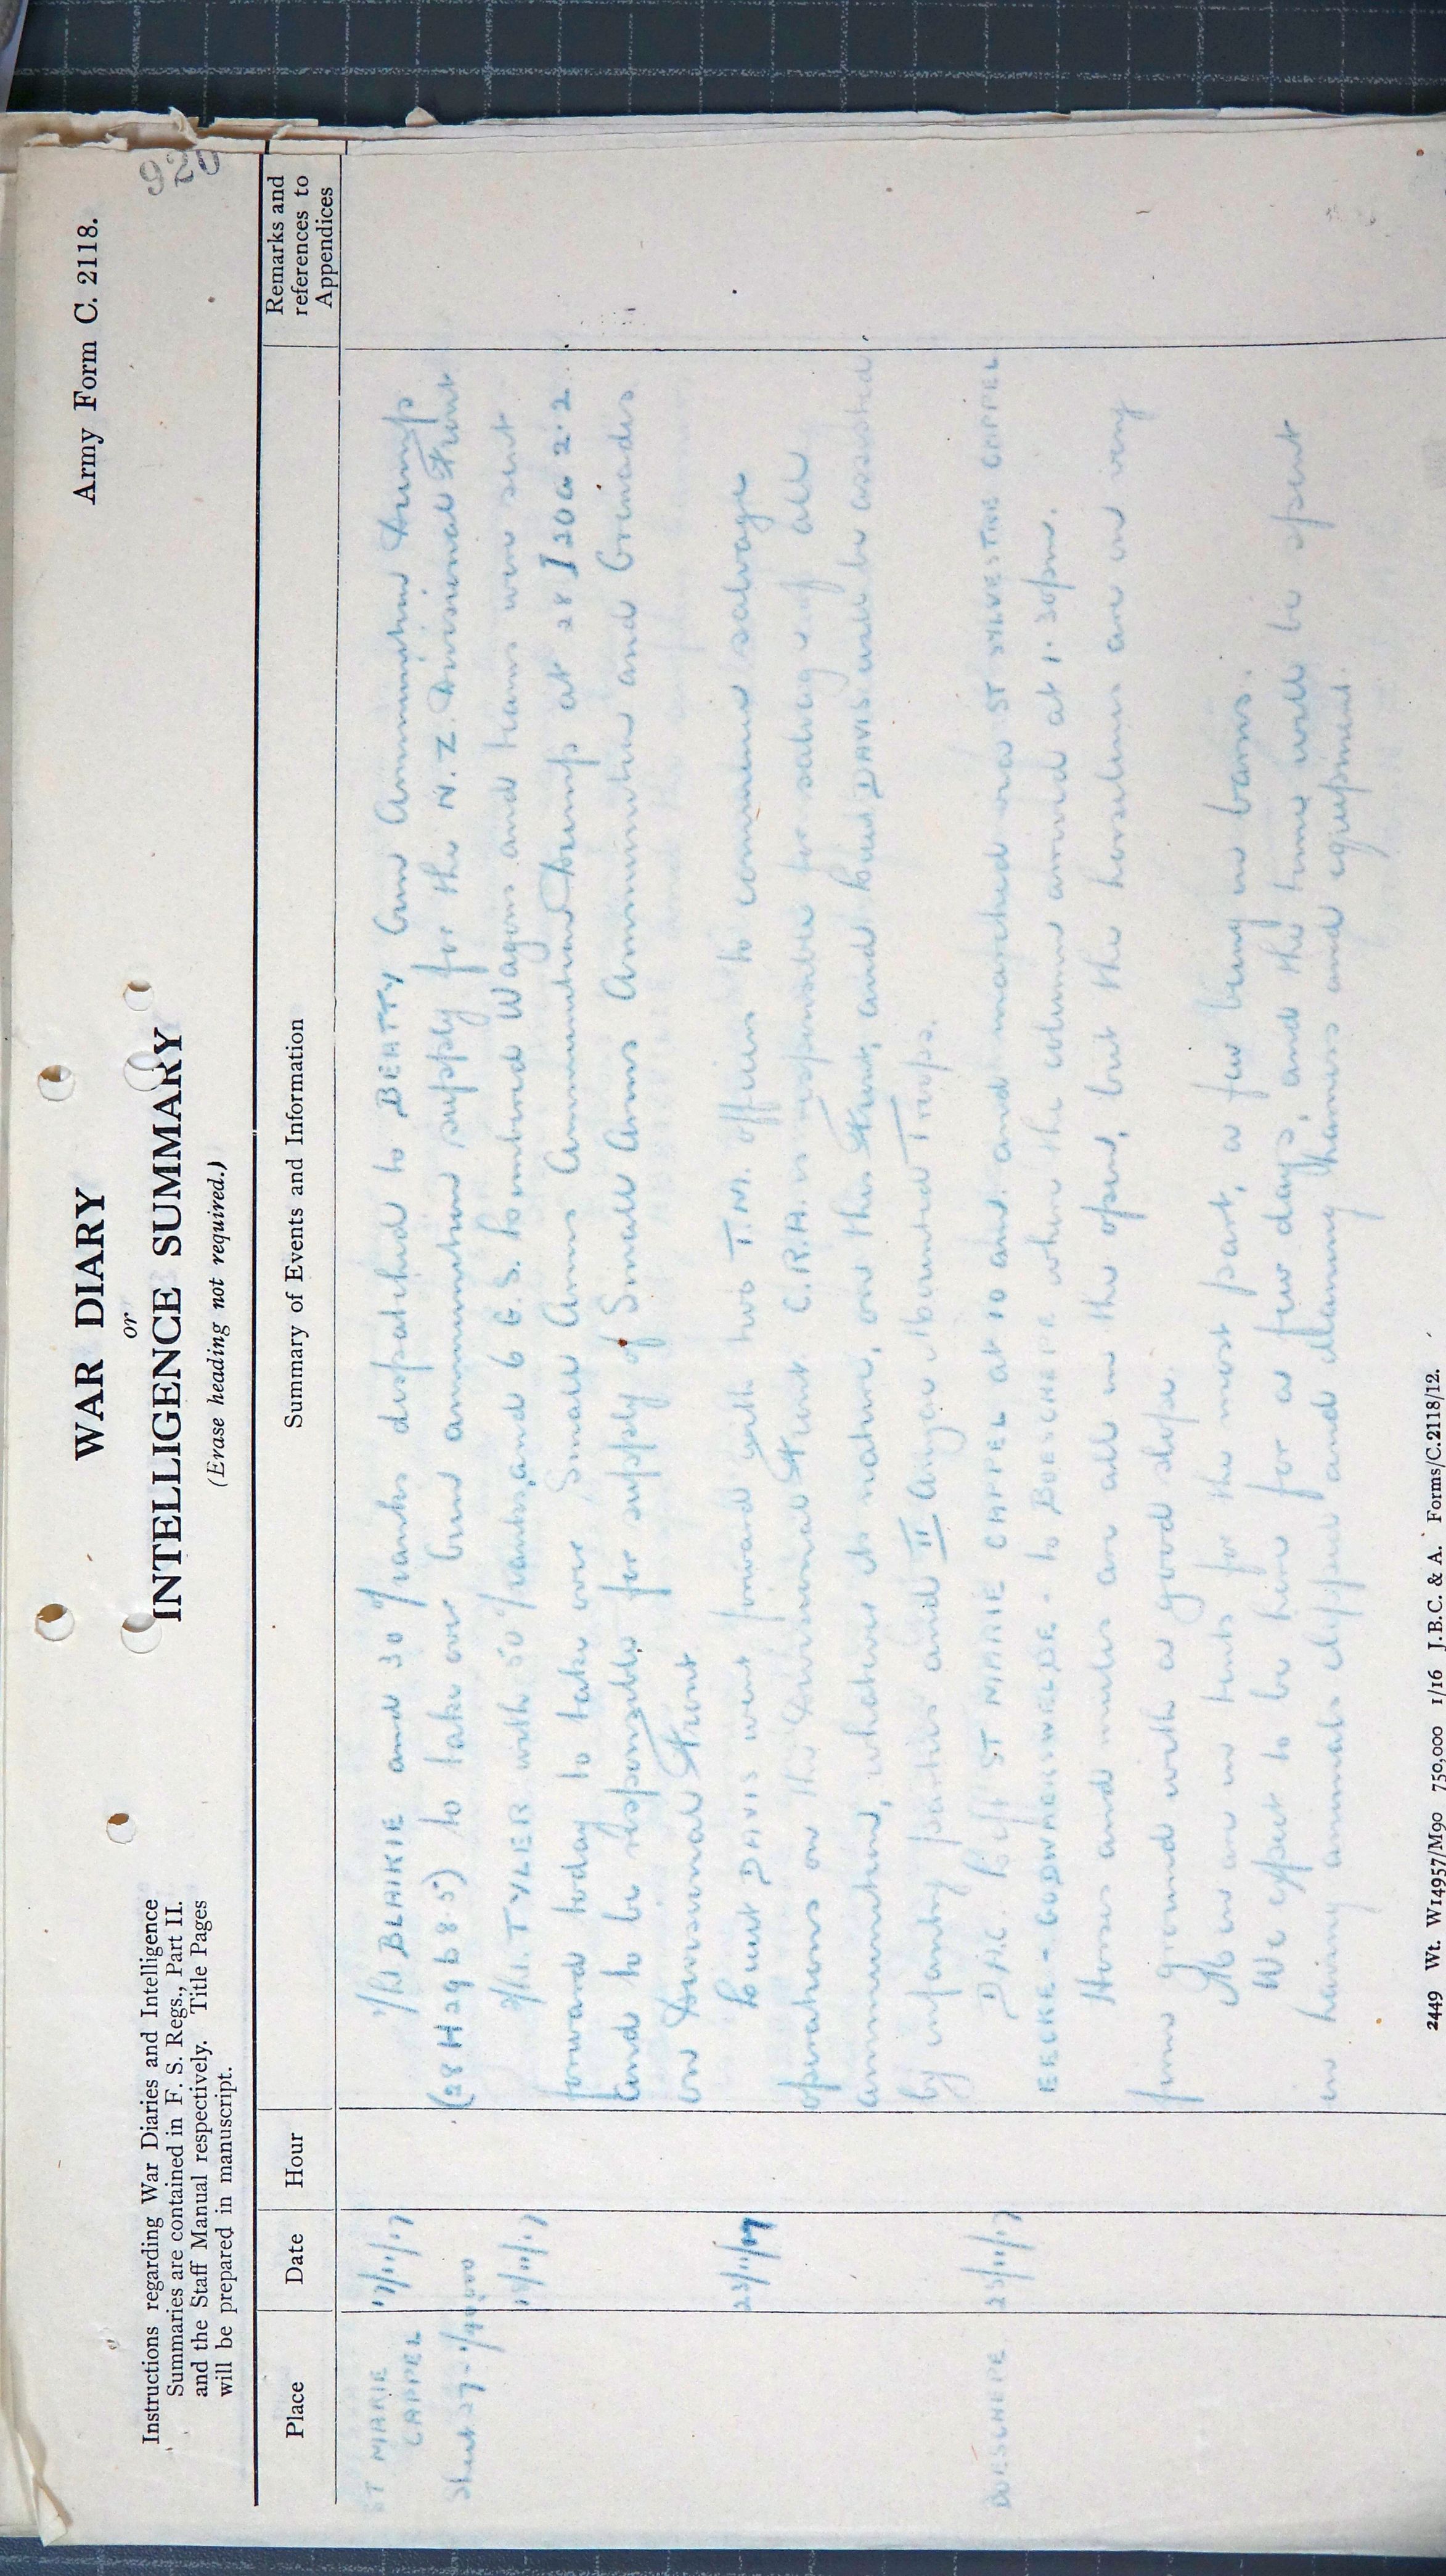 Army Form C. 2118.
WAR DIARY
or
INTELLIGENCE SUMMARY
(Erase heading not required.)
920
Instructions regarding War Diaries and Intelligence
Summaries are contained in F. S. Regs., Part II.
and the Staff Manual respectively. Title Pages
will be prepared in manuscript.
Place
Date
Hour
Summary of Events and Information
Remarks and
references to
Appendices
ST MARIE
CAPPEL
Sheet 27 - 1/40,000
BLAIKIE and 30 O/ranks despatched to BEATTY Gun Ammunition Dump
(28 H 29 b 8.5) to take over Gun ammunition supply for the N.Z. Divisional Front
2/Lt. TYLER with 50 O/ranks, and 6 G.S. Limbered Wagons and teams were sent
forward today to take over Small Arms Ammunition Dump at 28 I 20 a 2.2
and to be responsible for supply of Small Arms Ammunition and Grenades
on Divisional Front
23/11/17
Lieut DAVIS went forward with two T.M. officers to commence salvage
operations on the Divisional Front. C.R.A. is responsible for salving of all
ammunition, whatever its nature, on this Front, and Lieut DAVIS will be assisted
by infantry parties and II Anzac Mounted Troops.
BOESCHEPE
25/11/17
D.A.C. left ST MARIE CAPPEL at 10 am. and marched via ST SYLVESTRE CAPPEL
EECKE - GODWAERSVELDE - to BOESCHEPE where the column arrived at 1.30pm.
Horses and mules are all in the open, but the horselines are on very
firm ground with a good slope.
Men are in tents for the most part, a few being in barns.
We expect to be here for a few days, and the time will be spent
in having animals clipped and cleaning harness and equipment.
2449 Wt. W14957/M90 750,000 1/16 J.B.C. & A. Forms/C.2118/12.